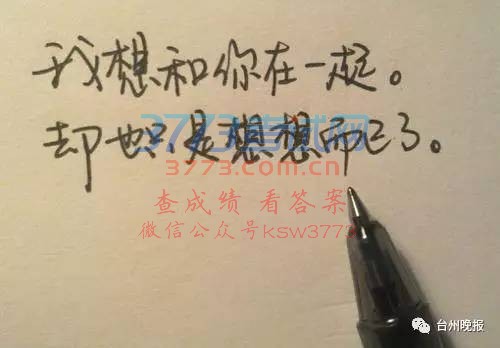 我想和你在一起。
却也只是想想而已了。
3773考试网
3773.com.cn
查成绩 看答案
微信公众号ksw3773
台州晚报